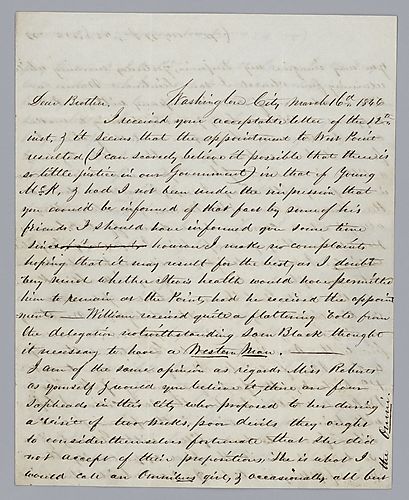 Washington City March 16th 1846
Dear Brother,
I received your acceptable letter of the 12th
inst, & it seems that the appointment to West Point
resulted (I can scarcely believe it possible that there is
so little justice in our Government) in that of Young
McK, & had I not been under the impression that
you would be informed of that fact by some of his
friends I should have informed you some time
since however I make no complaints
hoping that it may result for the best, as I doubt
very much whether health would have permitted
him to remain at the Point, had he received the appoint
ment — William received quite a flattering vote from
the delegation notwithstanding Black thought
it necessary to have a Western Man. —
I am of the same opinion as regards Miss Roberts
as yourself, & would you believe it, there are four
sapheads in this city who proposed to her during
a visit of two weeks, poor devils they ought
to consider themselves fortunate that she did
not accept of their propositions. She is what I
would call an Omnibus girl, & occasionally all but
the